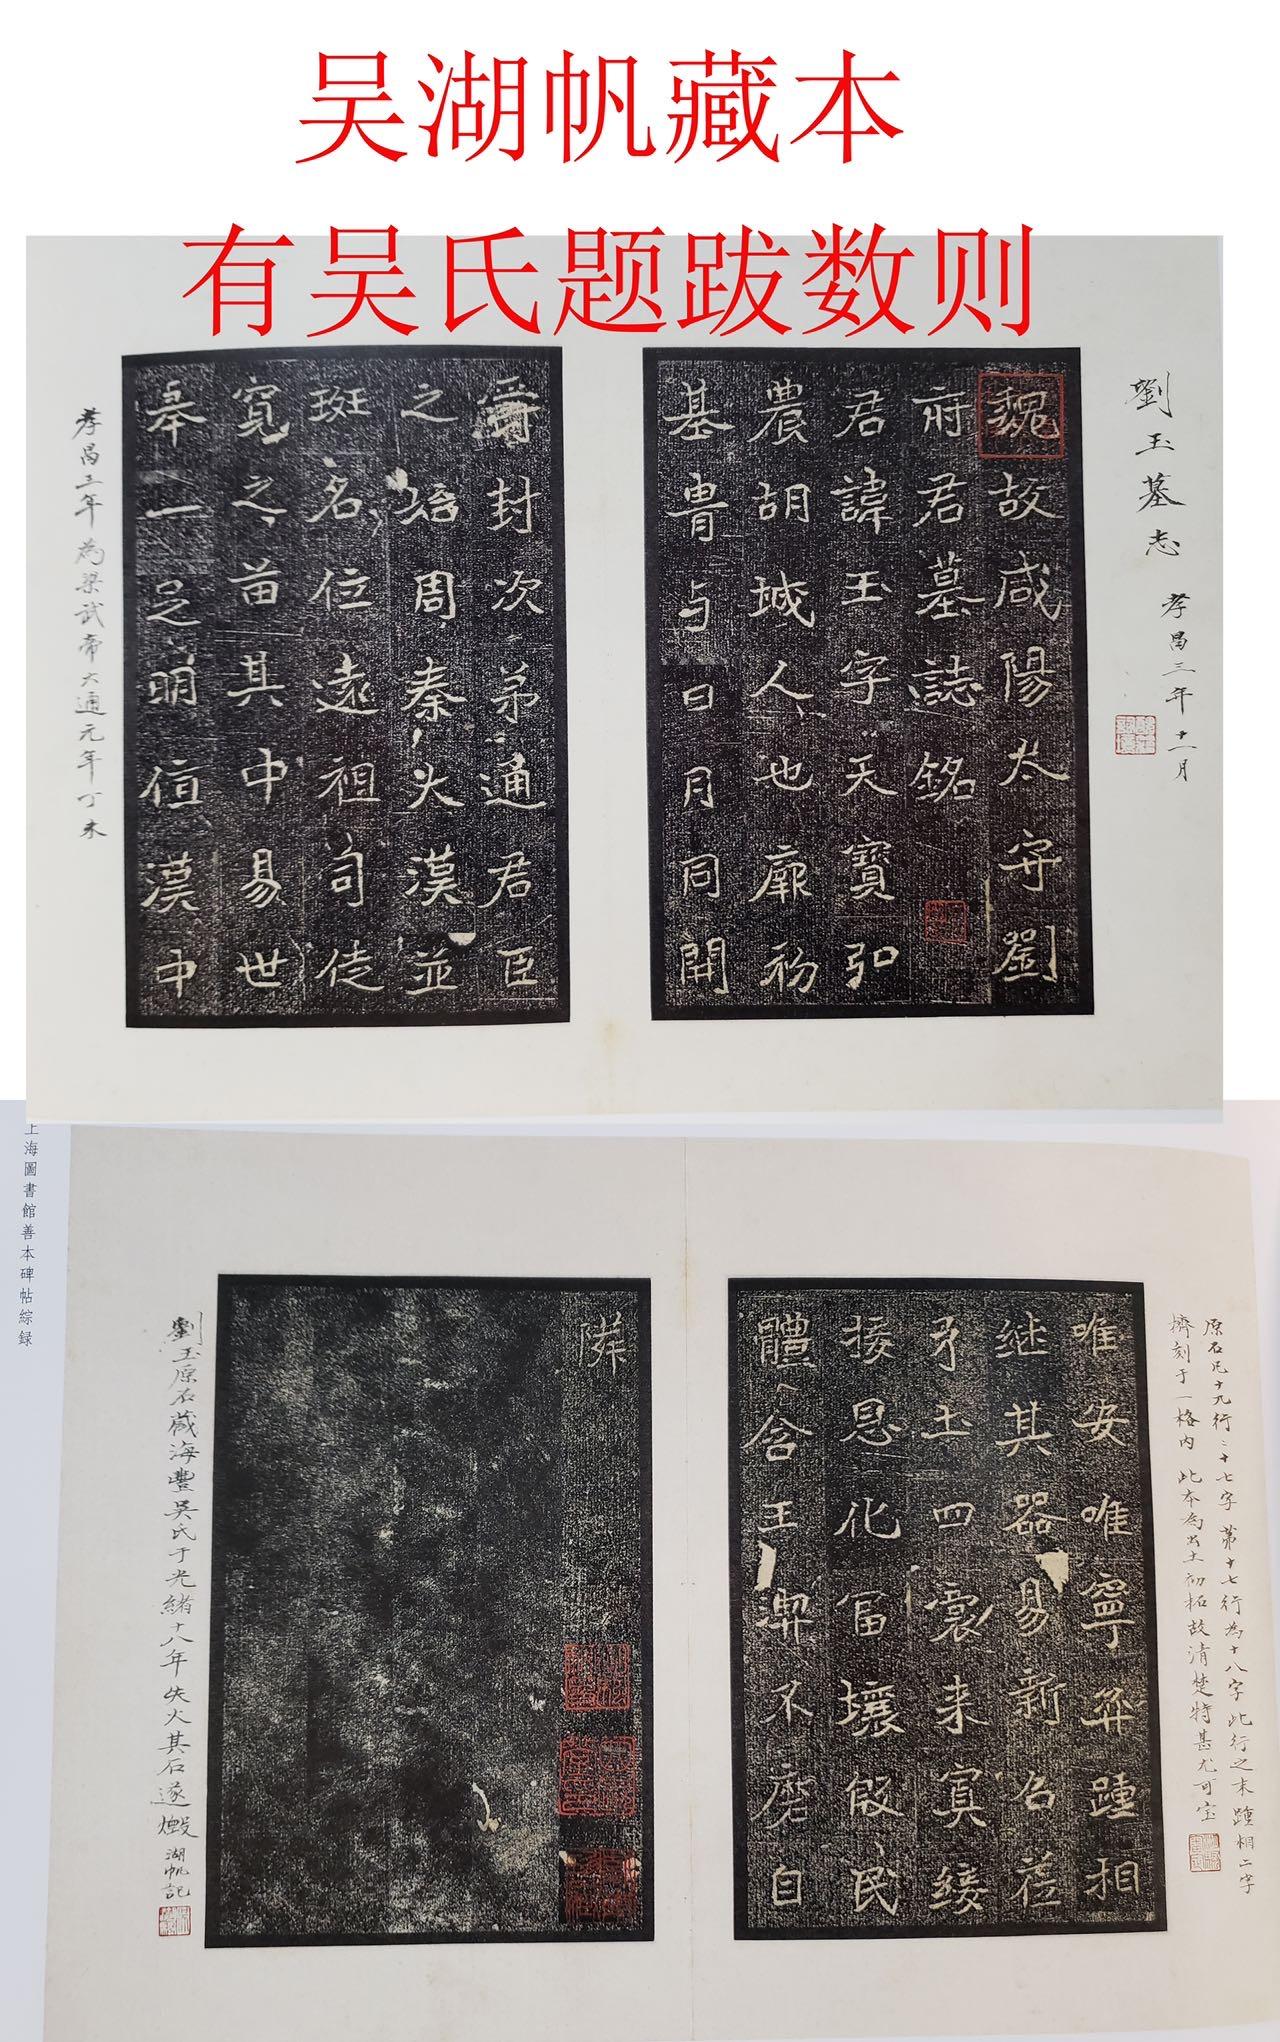 吴湖帆藏本
有吴氏题跋数则
劉玉墓志
孝昌三年十一月
魏故咸陽太守劉
府君墓誌銘
君諱玉字天寶弘
農胡城人也廓初
基胄与日月同開
爵封次弟通君臣
之始周秦大漢並
班名位遠祖司徒
寬之苗其中易世
奉一之明值漢中
孝昌三年為梁武帝大通元年丁未
原石凡十九行二十七字第十七行為十八字此行之末踵相二字
擠刻于一格内此本為出土初拓故清楚特甚尤可宝
唯安唯寧弈踵相
继其器易新名舊
牙土四裏来賓綏
接恩化富壤假民
體含王澳不磨自
隣
劉玉原石藏海豐吴氏于光緒十八年失火其石遂燬湖帆記
上海圖書館善本碑帖綜録